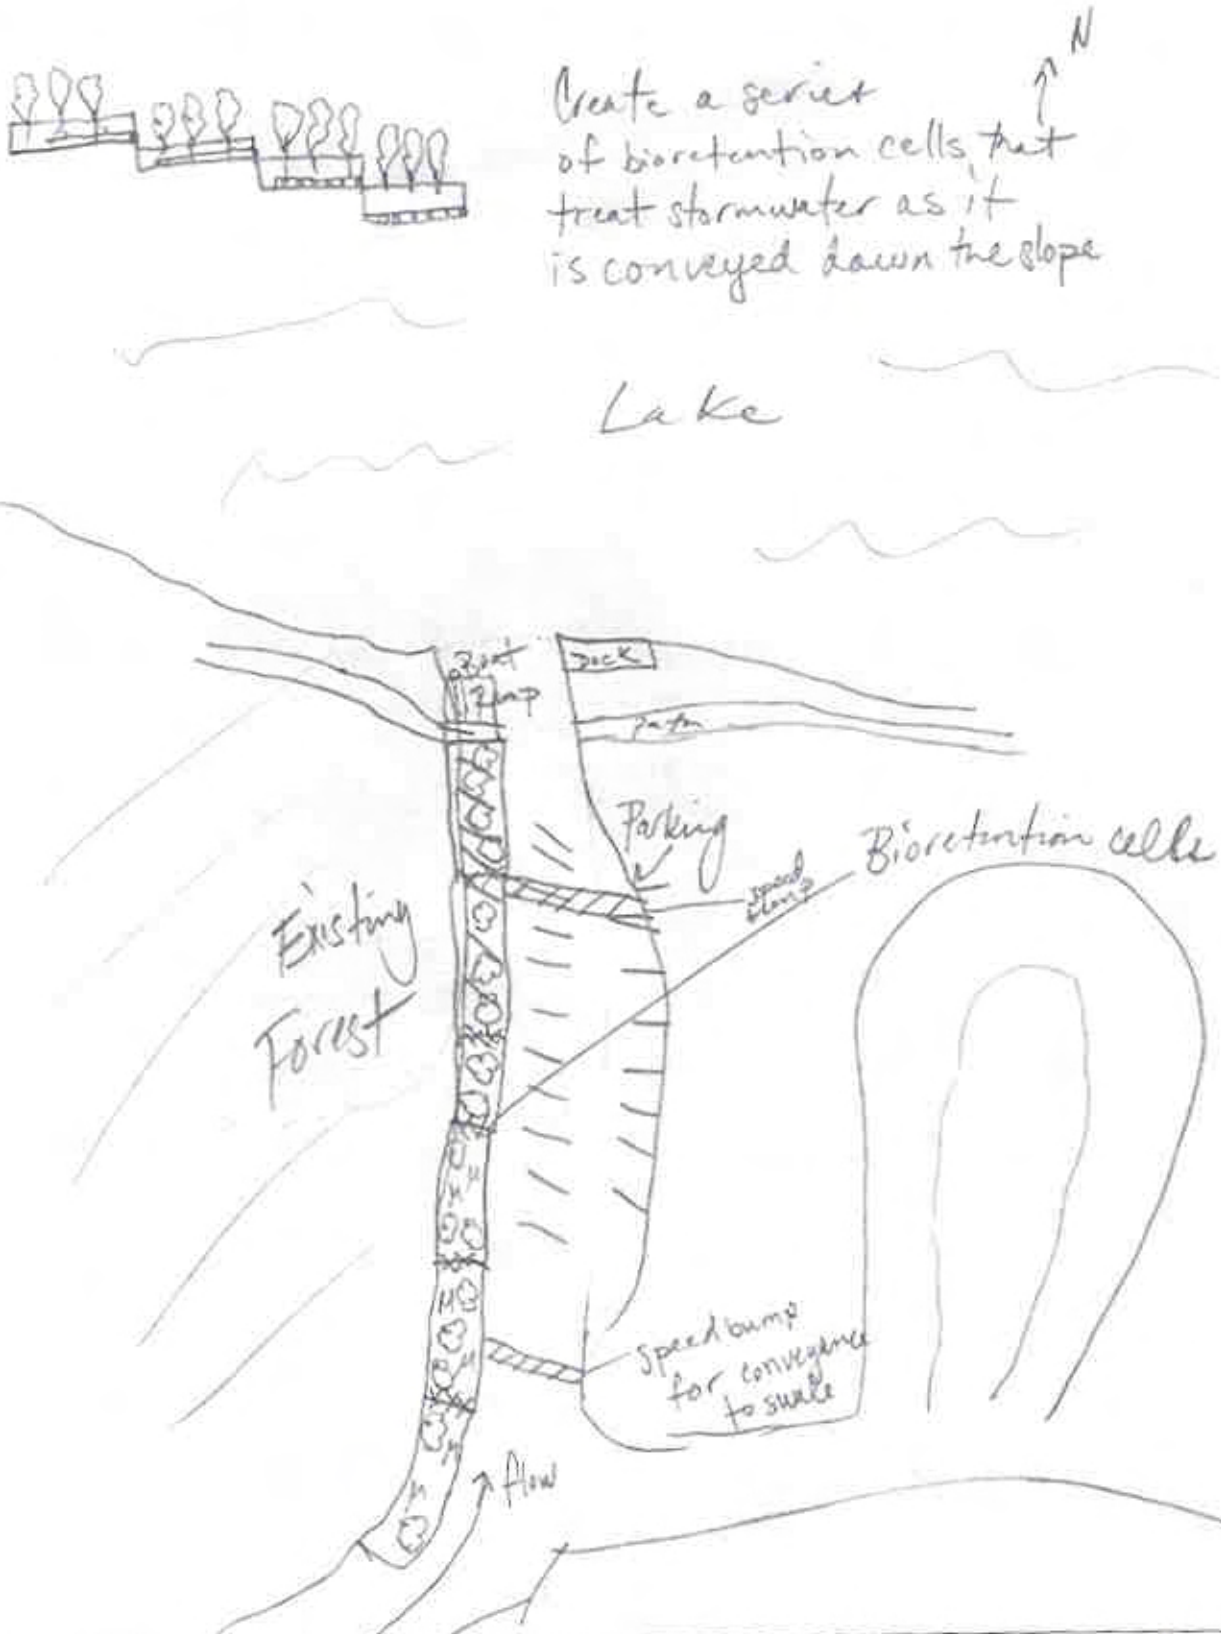 N
Create a series
of bioretention cells that
treat stormwater as it
is conveyed down the slope
Lake
Boat
Ramp
Dock
Path
Parking
speed
bump
Bioretention cells
Existing
Forest
speedbump
for conveyance
to swale
flow